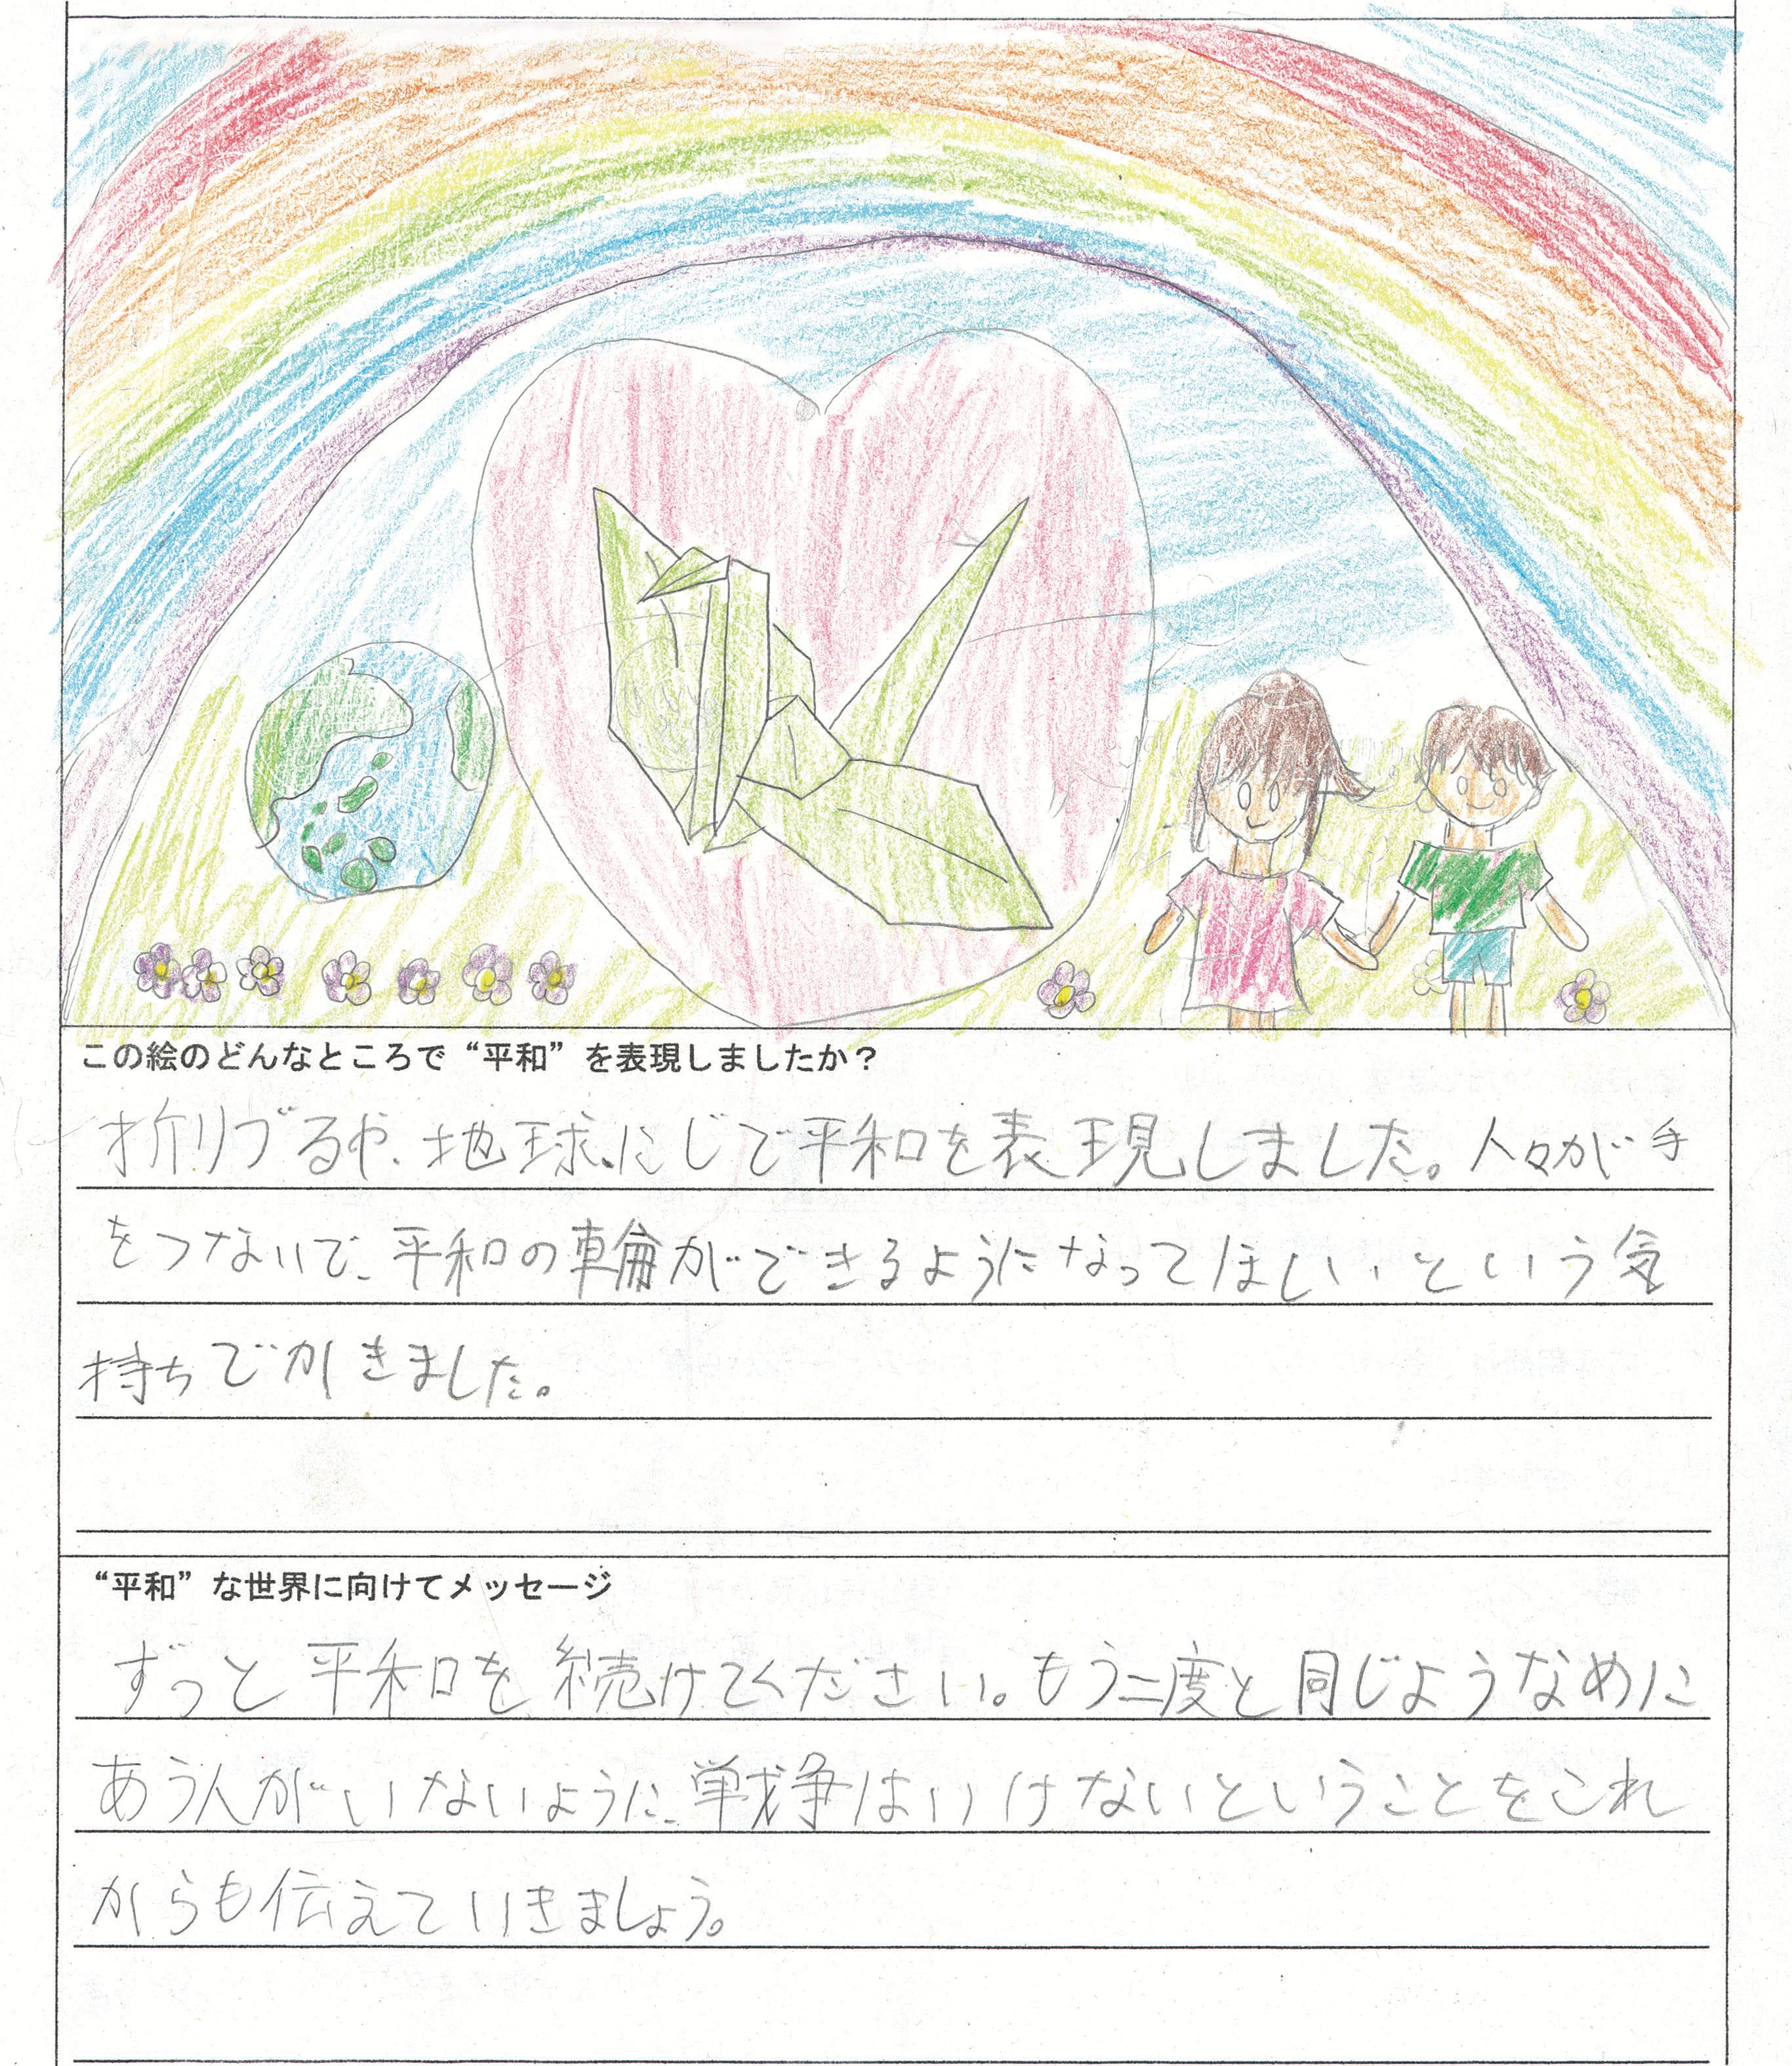 この絵のどんなところで“平和”を表現しましたか？
折りづるや、地球、にじで平和を表現しました。人々が手
をつないで、平和の輪ができるようになってほしい、という気
持ちでかきました。
“平和”な世界に向けてメッセージ
ずっと平和を続けてください。もう二度と同じようなめに
あう人がいないように、戦争はいけないということをこれ
からも伝えていきましょう。